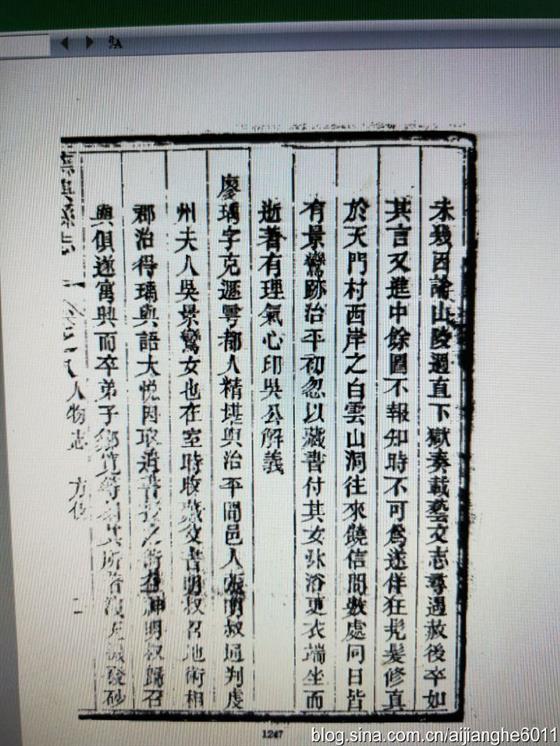 未幾因論山陵過直下獄奏載藝文志尋遇赦後卒如
其言又進中餘圖不報知時不可為遂佯狂髡髮修真
於天門村西岸之白雲山洞往來饒信間數處同日皆
有景鸞跡治平初忽以藏書付其女沐浴更衣端坐而
逝著有理氣心印吳公解義
廖瑀字克雩都人精堪輿治平間邑人張明叔通判虔
州夫人吳景鸞女也在室時收藏父書明叔召地術相
郡治得瑀與語大悅因取遺書授之術益神明叔歸召
與俱遂寓興而卒弟子等其所著砂
興縣志 人物志 方伎
1247
blog.sina.com.cn/aijianghe6011